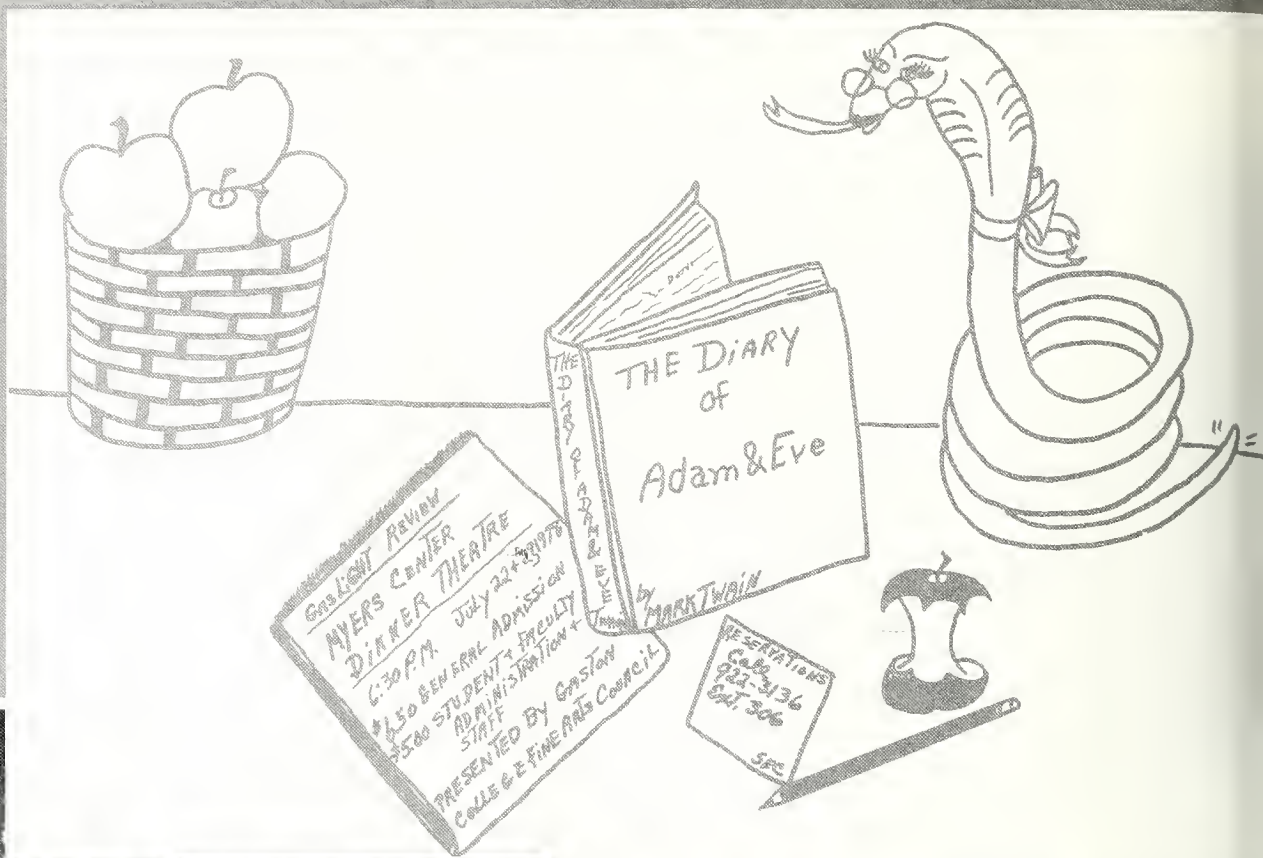 THE DiARY
of
Adam & Eve
by
MARK TWAIN
THE DIARY OF ADAM & EVE
TWAIN
GASLIGHT REVIEW
MYERS CENTER
DINNER THEATRE
6:30 P.M. July 22 + 23 1978
$6.50 GENERAL ADMISSION
$5.00 STUDENT + FACULTY
ADMINISTRATION +
STAFF
PRESENTED BY GASTON
COLLEGE FINE ARTS COUNCIL
RESERVATIONS
Call
922-3136
Ext. 306